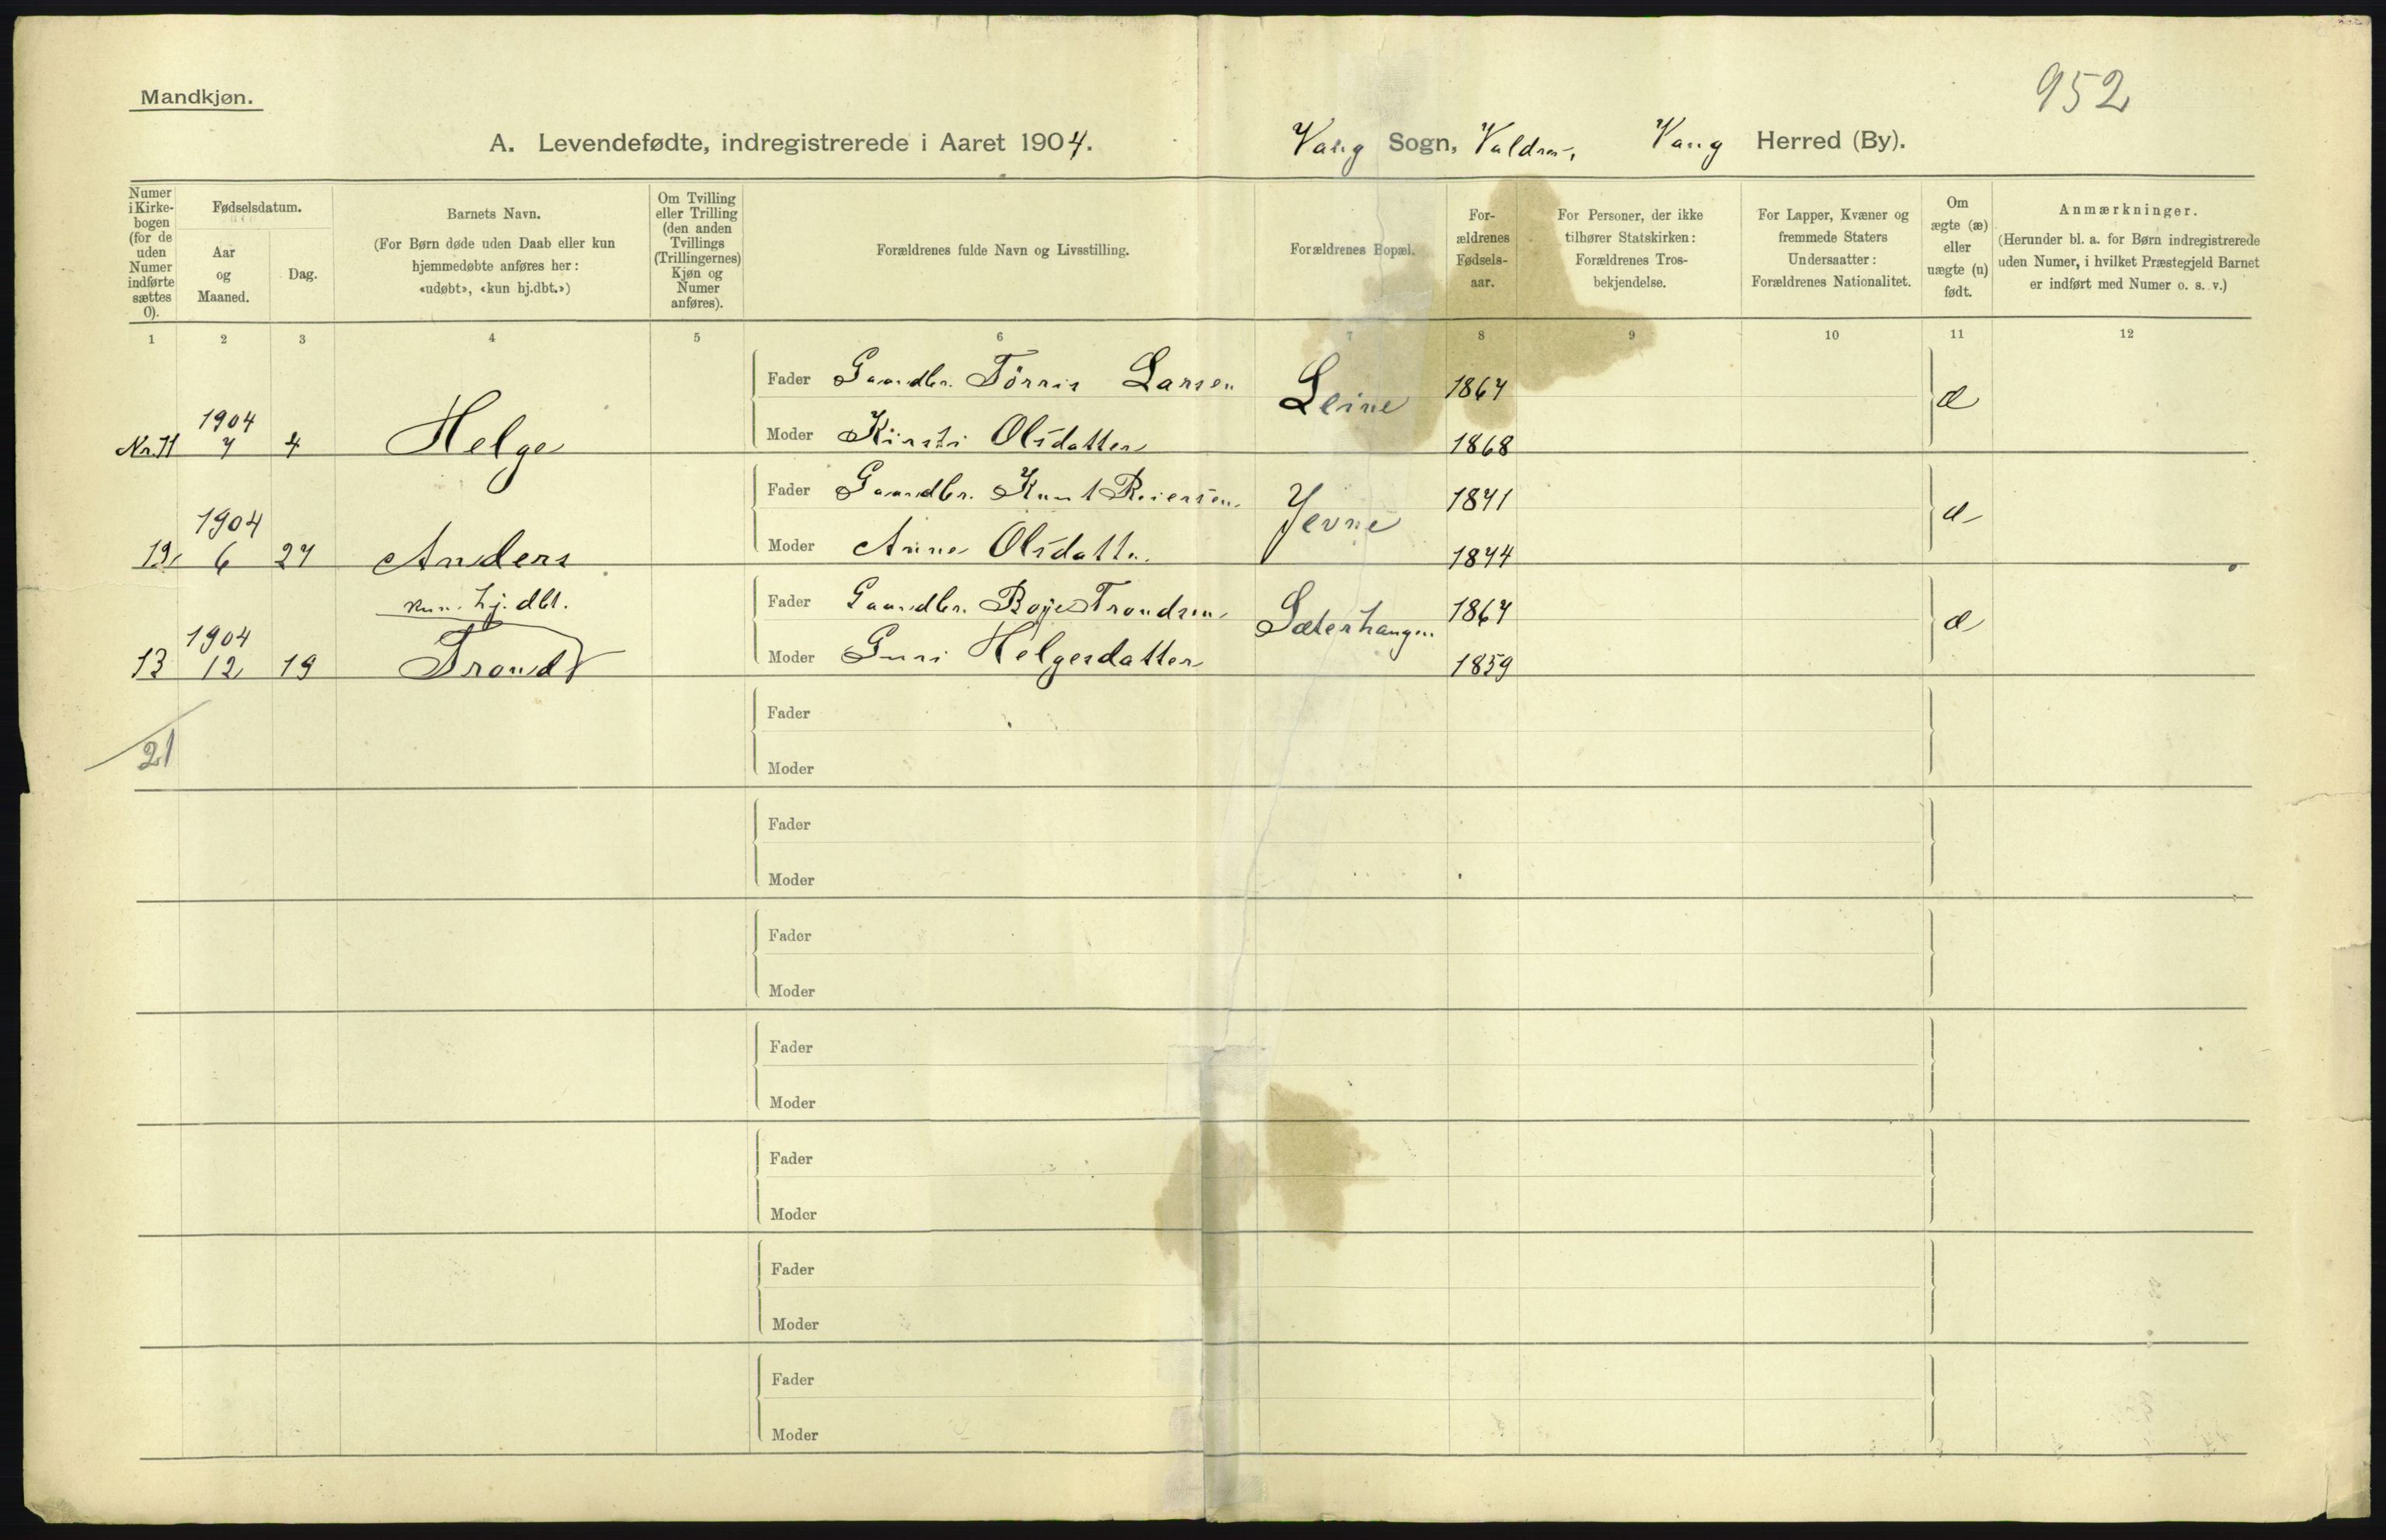 952
Mandkjøn.
A. Levendefødte, indregistrerede i Aaret 1904. Vang Sogn, Valdres, Vang Herred (By).
Numer i Kirke-bogen (for de uden Numer indførte sættes 0).
Fødselsdatum.
Aar og Maaned.
Dag.
Barnets Navn.
(For Børn døde uden Daab eller kun
hjemmedøbte anføres her:
«udøbt», «kun hj.dbt.»)
Om Tvilling
eller Trilling
(den anden
Tvillings
(Trillingernes)
Kjøn og
Numer
anføres).
Forældrenes fulde Navn og Livsstilling.
Forældrenes Bopæl.
For-
ældrenes
Fødsels-
aar.
For Personer, der ikke
tilhører Statskirken:
Forældrenes Tros-
bekjendelse.
For Lapper, Kvæner og
fremmede Staters
Undersaatter:
Forældrenes Nationalitet.
Om
ægte (æ)
eller
uægte (u)
født.
Anmærkninger.
(Herunder bl. a. for Børn indregistrerede
uden Numer, i hvilket Præstegjeld Barnet
er indført med Numer o. s. v.)
1 2 3 4 5 6 7 8 9 10 11 12
Fader Gaardbr. Törris Larsen Leine 1867 æ
1904
Nr. 11 7 4 Helge
Moder Kirsti Olsdatter 1868
Fader Gaardbr. Knut Reiersen 1841 æ
1904
12 6 27 Anders
Moder Anne Olsdatter 1844
kun hj. dbt.
Fader Gaardbr. Boye Trondsen Sæterhaugen 1867 æ
1904
13 12 19 Trond
Moder Guri Helgesdatter 1859
21
Fader
Moder
Fader
Moder
Fader
Moder
Fader
Moder
Fader
Moder
Fader
Moder
Fader
Moder